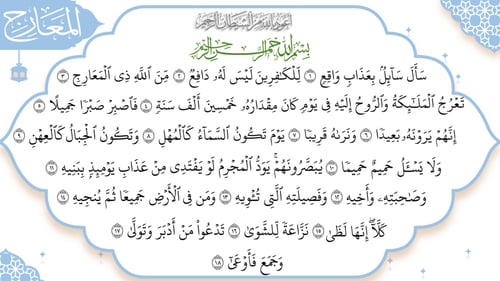 المعارج
أعوذ بالله من الشيطان الرجيم
بسم الله الرحمن الرحيم
سَأَلَ سَآئِلٌۢ بِعَذَابٍ وَاقِعٍ ١ لِّلْكَٰفِرِينَ لَيْسَ لَهُۥ دَافِعٌ ٢ مِّنَ ٱللَّهِ ذِى ٱلْمَعَارِجِ ٣
تَعْرُجُ ٱلْمَلَٰٓئِكَةُ وَٱلرُّوحُ إِلَيْهِ فِى يَوْمٍ كَانَ مِقْدَارُهُۥ خَمْسِينَ أَلْفَ سَنَةٍ ٤ فَٱصْبِرْ صَبْرًا جَمِيلًا ٥
إِنَّهُمْ يَرَوْنَهُۥ بَعِيدًا ٦ وَنَرَىٰهُ قَرِيبًا ٧ يَوْمَ تَكُونُ ٱلسَّمَآءُ كَٱلْمُهْلِ ٨ وَتَكُونُ ٱلْجِبَالُ كَٱلْعِهْنِ ٩
وَلَا يَسْـَٔلُ حَمِيمٌ حَمِيمًا ١٠ يُبَصَّرُونَهُمْ ۚ يَوَدُّ ٱلْمُجْرِمُ لَوْ يَفْتَدِى مِنْ عَذَابِ يَوْمِئِذٍۭ بِبَنِيهِ ١١
وَصَٰحِبَتِهِۦ وَأَخِيهِ ١٢ وَفَصِيلَتِهِ ٱلَّتِى تُـْٔوِيهِ ١٣ وَمَن فِى ٱلْأَرْضِ جَمِيعًا ثُمَّ يُنجِيهِ ١٤
كَلَّآ ۖ إِنَّهَا لَظَىٰ ١٥ نَزَّاعَةً لِّلشَّوَىٰ ١٦ تَدْعُوا۟ مَنْ أَدْبَرَ وَتَوَلَّىٰ ١٧
وَجَمَعَ فَأَوْعَىٰٓ ١٨